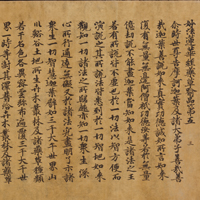 妙法蓮華經藥草喻品第五 三
尒時世尊告摩訶迦葉及諸大弟子善哉善
哉迦葉善說如來真實功德誠如所言如來
復有無量無邊阿僧祇功德汝等若於無量
億劫說不能盡迦葉當知如來是諸法之王
若有所說皆不虛也於一切法以智方便而
演說之其所說法皆悉到於一切智地如來
觀知一切諸法之所歸趣亦知一切衆生深
心所行通達無礙又於諸法究盡明了示諸
衆生一切智慧迦葉譬如三千大千世界山
川谿谷土地所生卉木叢林及諸藥草種類
若干名色各異密雲弥布遍覆三千大千世
界一時等澍其澤普洽卉木叢林及諸藥草